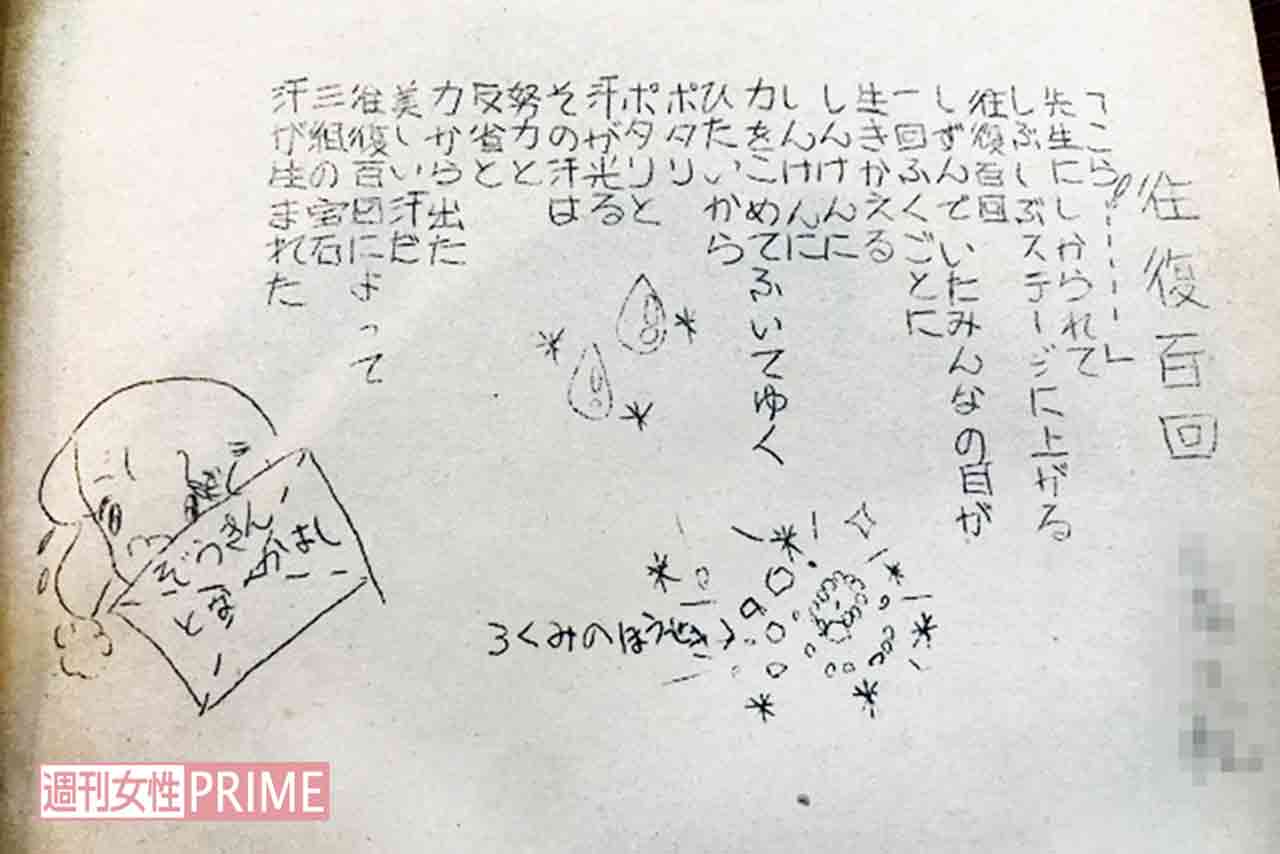 往復百回
「こら！！ーーーー」
先生にしかられて
しぶしぶステージに上がる
往復百回
しずんでいたみんなの目が
一回ふくごとに
生きかえる
しんけんに
しんけんに
力をこめてふいてゆく
ひたいから
ポタリ
ポタリと
汗が光る
その汗は
努力と
反省と
力から出た
美しい汗だ
往復百回によって
三組の宝石
汗が生まれた
3くみのほうせき
ぞうきん
とな
かはし
週刊女性PRIME